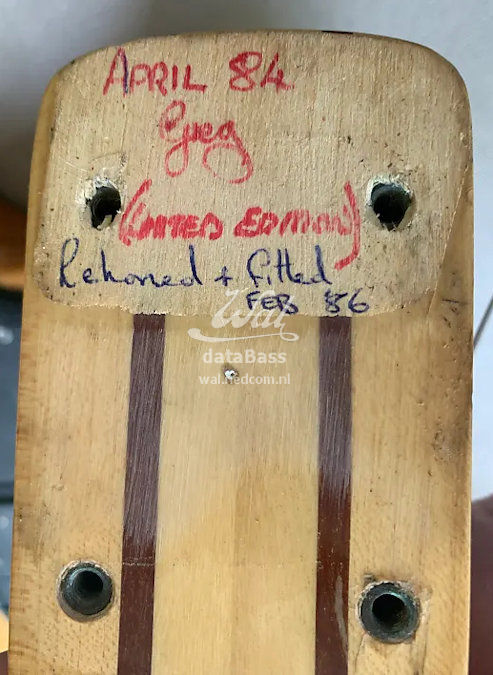 APRIL 84
Greg
(LIMITED EDITION)
Rehoned + fitted
FEB 86
Wal
dataBass
wal.hedcom.nl